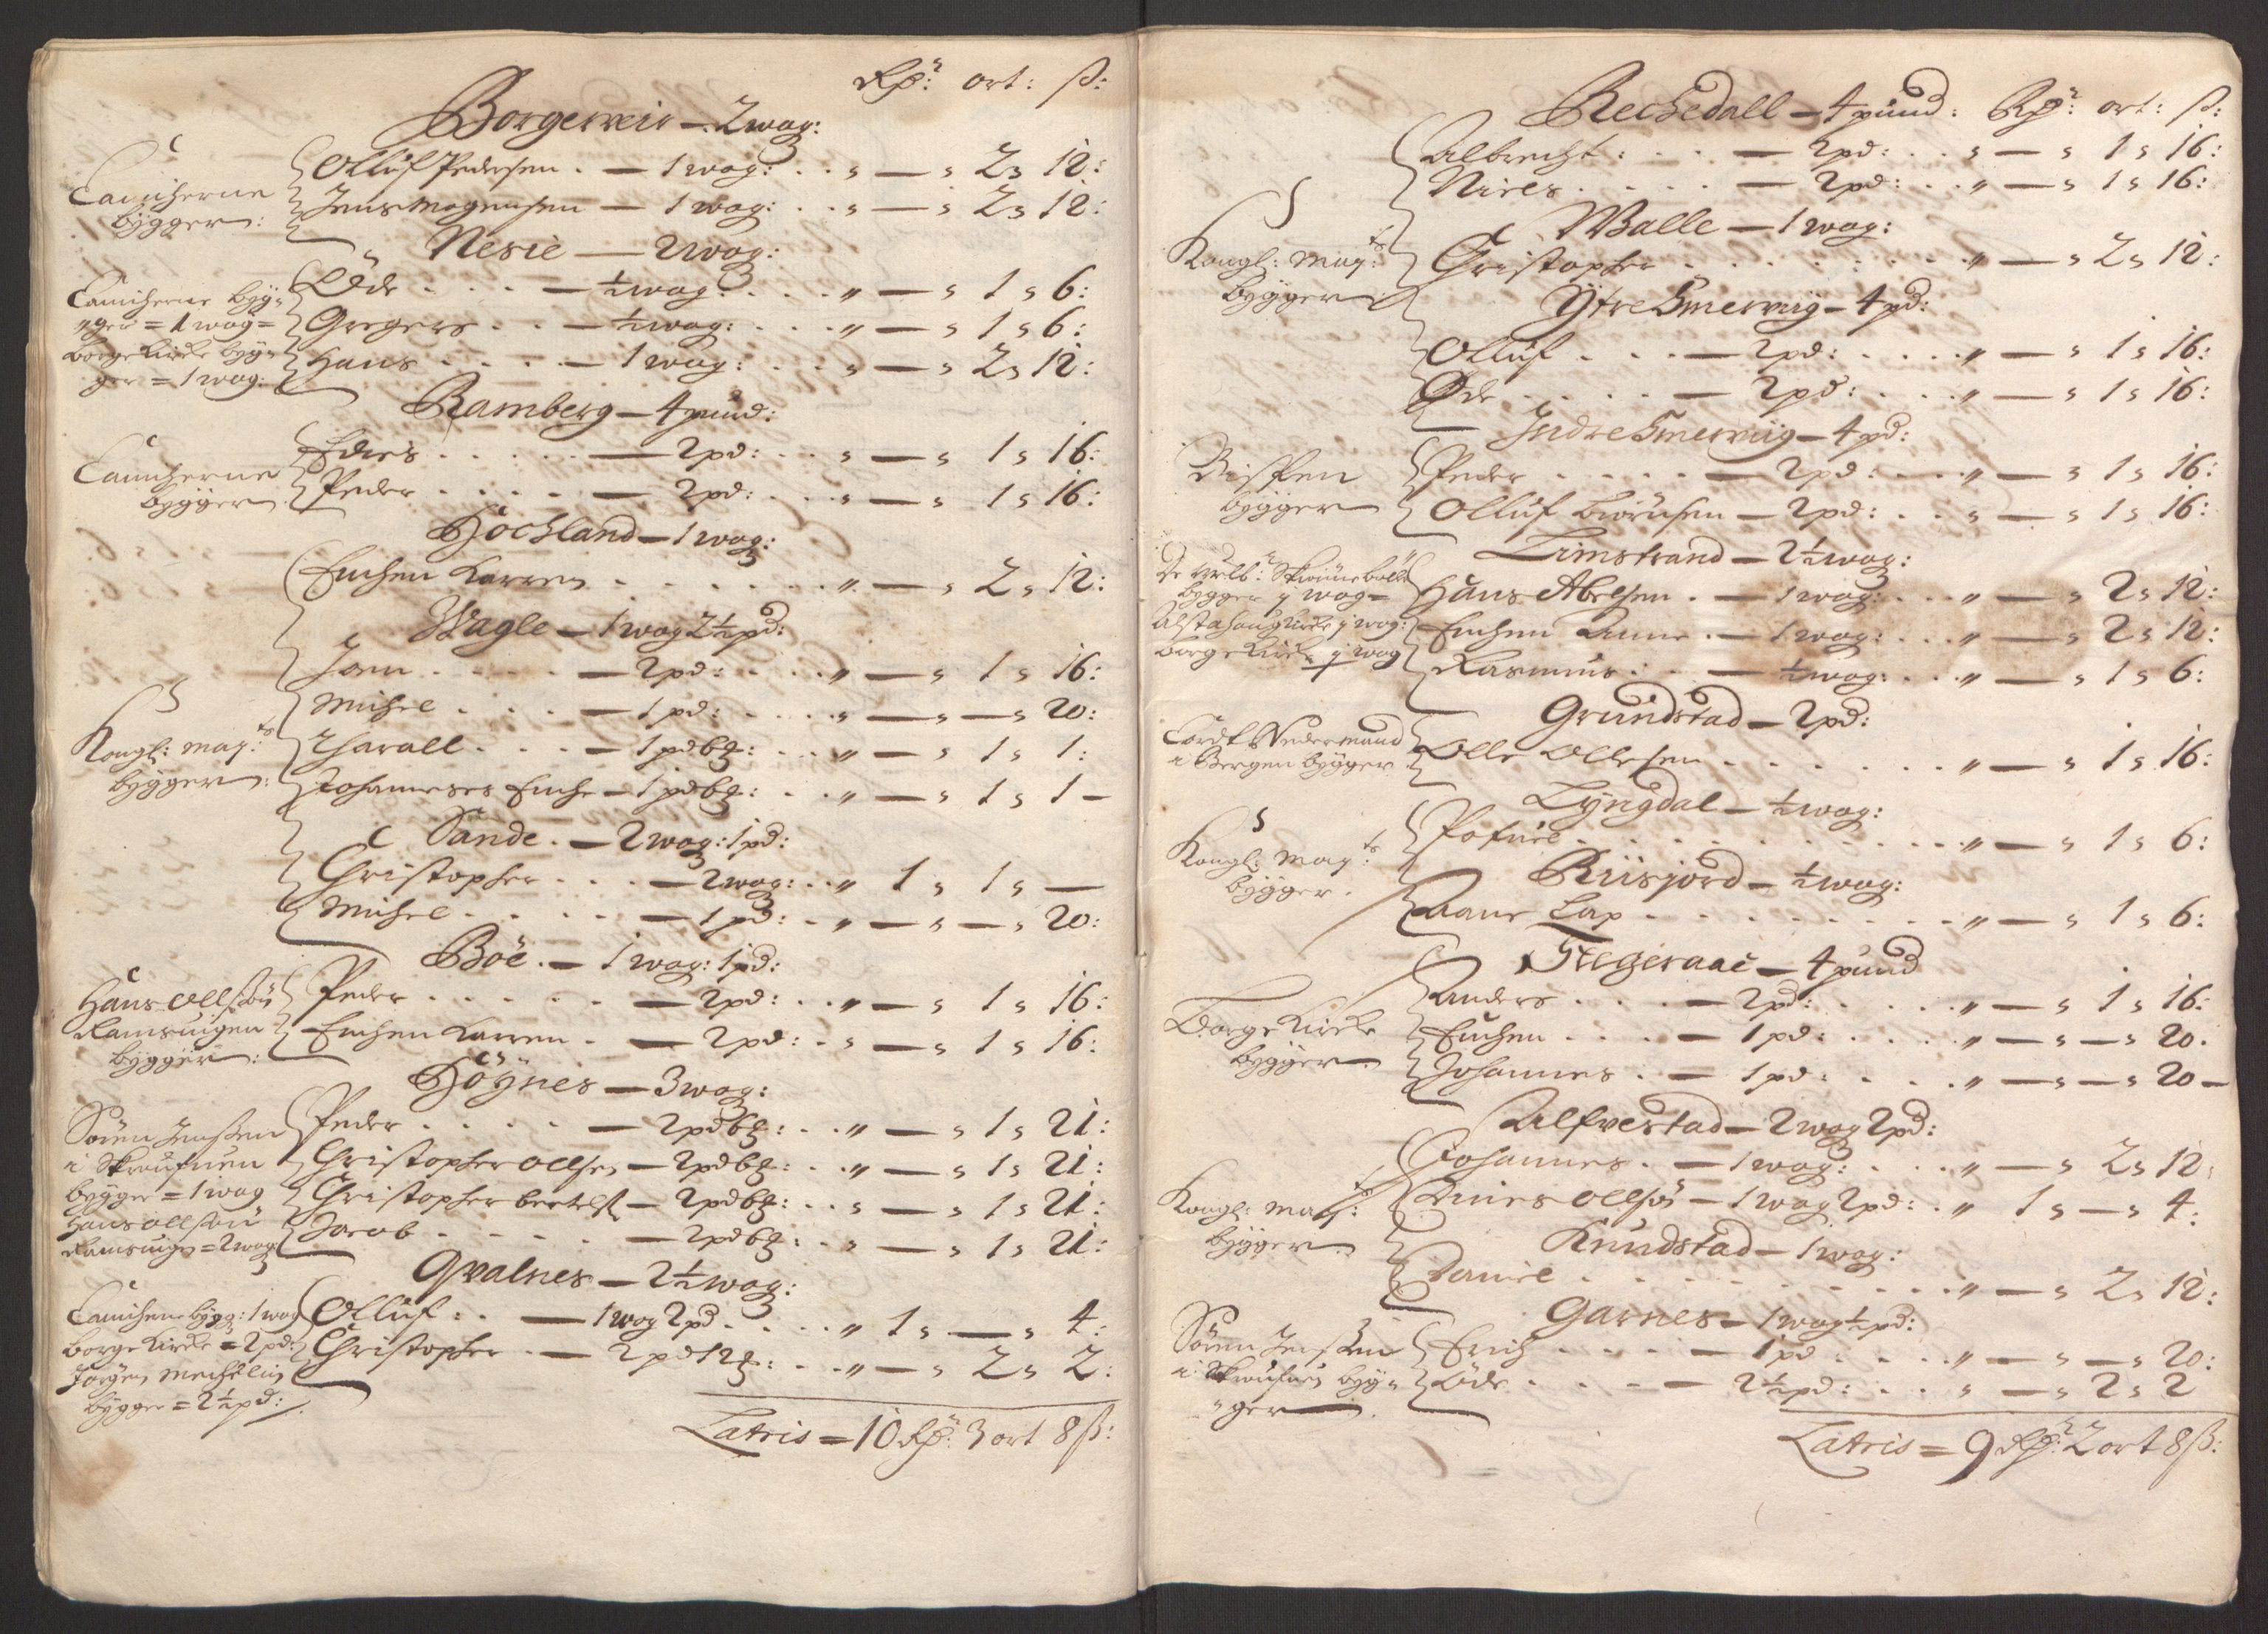 Rdr: ort: ß:
Borgerveir — 2 wog:
Canicherne
bÿgger:
Olluf Pedersen . — 1 wog: . . „ — „ 2 „ 12:
Jens Mogensen — 1 wog: . . „ — „ 2 „ 12:
Nesie — 2 wog:
Canicherne bÿg„
„ger = 1 wog =
Borge Kircke bÿg„
ger = 1 wog:
Öde . . . — ½ wog: . . . „ — „ 1 „ 6:
Gregers . . — ½ wog: . . . „ — „ 1 „ 6:
Hans . . . . — 1 wog: . . „ — „ 2 „ 12:
Ramberg — 4 pund:
Canicherne
bÿgger
Edis . . . . . — 2 pd: . . „ — „ 1 „ 16:
Peder . . . . — 2 pd: . . . „ — „ 1 „ 16:
Hochland — 1 wog:
Enchen Karren . . . . . . „ — „ 2 „ 12:
Wagle — 1 wog 2½ pd:
Kongl: Mayts
bÿgger:
Joen . . . . — 2 pd: . . . „ — „ 1 „ 16:
Michel . . . — 1 pd: . . . . „ — „ — „ 20:
Tharall . . . — 1 pd 6 ℔: . . „ — „ 1 „ 1:
Johanneses Enche — 1 pd 6 ℔: . . „ — „ 1 „ 1 —
Sande . — 2 wog: 1 pd:
Christopher . . . — 2 wog: . . „ 1 „ 1 „ —
Michel . . . . — 1 pd: . . „ — „ — „ 20:
Böe . — 1 wog: 1 pd:
Hans Ollsøn
Ramsuigen
bÿgger:
Peder . . . . . — 2 pd: . . „ — „ 1 „ 16:
Enchen Karren . — 2 pd: . „ — „ 1 „ 16:
Höÿnes — 3 wog:
Sören Jensen
i Skrufuen
bÿgger = 1 wog
Hans Ollsøn
Ramsuign = 2 wog
Peder . . . . — 2 pd 6 ℔: . . „ — „ 1 „ 21:
Christopher Ollsen — 2 pd 6 ℔: . . „ — „ 1 „ 21:
Christopher bertelß — 2 pd 6 ℔: . . „ — „ 1 „ 21:
Jacob . . . . . — 2 pd 6 ℔: . . „ — „ 1 „ 21:
Qvalnes — 2½ wog:
Canicherne bÿgg: 1 wog
Borge Kircke = 2 pd:
Jörgen Mechelin
bÿgger = 2½ pd:
Olluf . . — 1 wog 2 pd . . . . „ 1 „ — „ 4:
Christopher . — 2 pd 12 ℔: . . „ — „ 2 „ 2:
Latris = 10 Rdr: 3 ort 8 ß:
Rechedall — 4 pund: Rdr: ort: ß:
Albrecht: . . — 2 pd: . . „ — „ 1 „ 16:
Niels . . . . — 2 pd: . . „ — „ 1 „ 16:
Kongl: Mayts:
bÿgger
Walle — 1 wog:
Christopher . . . . . . . „ — „ 2 „ 12:
Ytre Smervig — 4 pd:
Olluf . . . — 2 pd: . . . . „ — „ 1 „ 16:
Øde . . . . — 2 pd: . . . „ — „ 1 „ 16:
Indre Smervig — 4 pd:
Bispen
bÿgger
Peder . . . . — 2 pd: . . . „ — „ 1 „ 16:
Olluf biörnsen — 2 pd: . . „ — „ 1 „ 16:
Limstrand — 2½ wog:
bÿgger ½ wog =
Alstahaug Kircke ½ wog:
Borge Kircke ½ wog
Hans Abelsen . — 1 wog: . . . „ — „ 2 „ 12:
Enchen Anne . — 1 wog: . . . „ — „ 2 „ 12:
Rasmus: . . — ½ wog: . . . „ — „ 1 „ 6:
Grundstad — 2 pd:
Cordt Wedermand
i Bergen bÿgger
Olle Ollesen . . . . . . . „ — „ 1 „ 16:
Lyngdal — ½ wog:
Kongl: Mayts:
bÿgger.
Pofuel . . . . . . . . . . „ — „ 1 „ 6:
Riisjord — ½ wog:
Aane Lap . . . . . . . . „ — „ 1 „ 6:
Stegeraae — 4 pund
Borge Kircke
bÿgger
Anders . . . . — 2 pd: . . . . „ — „ 1 „ 16:
Enchen . . . — 1 pd: . . . . „ — „ — „ 20.
Johannes . — 1 pd: . . . „ — „ — „ 20 —
Alfvestad — 2 wog 2 pd:
Kongl: Mayts:
bÿgger
Johannes . — 1 wog: . . . „ — „ 2 „ 12:
Anies Ollsøn — 1 wog 2 pd: . „ 1 „ — „ 4:
Knudstad — 1 wog:
Daniel . . . . . . . . . „ — „ 2 „ 12:
Garnes — 1 wog ½ pd:
Sören Jensen
i Skrufuen bÿg„
„ger
Erich . . . . — 1 pd . . . . „ — „ — „ 20:
Öde . . . . — 2½ pd: . . „ — „ 2 „ 2
Latris = 9 Rdr: 2 ort 8 ß: